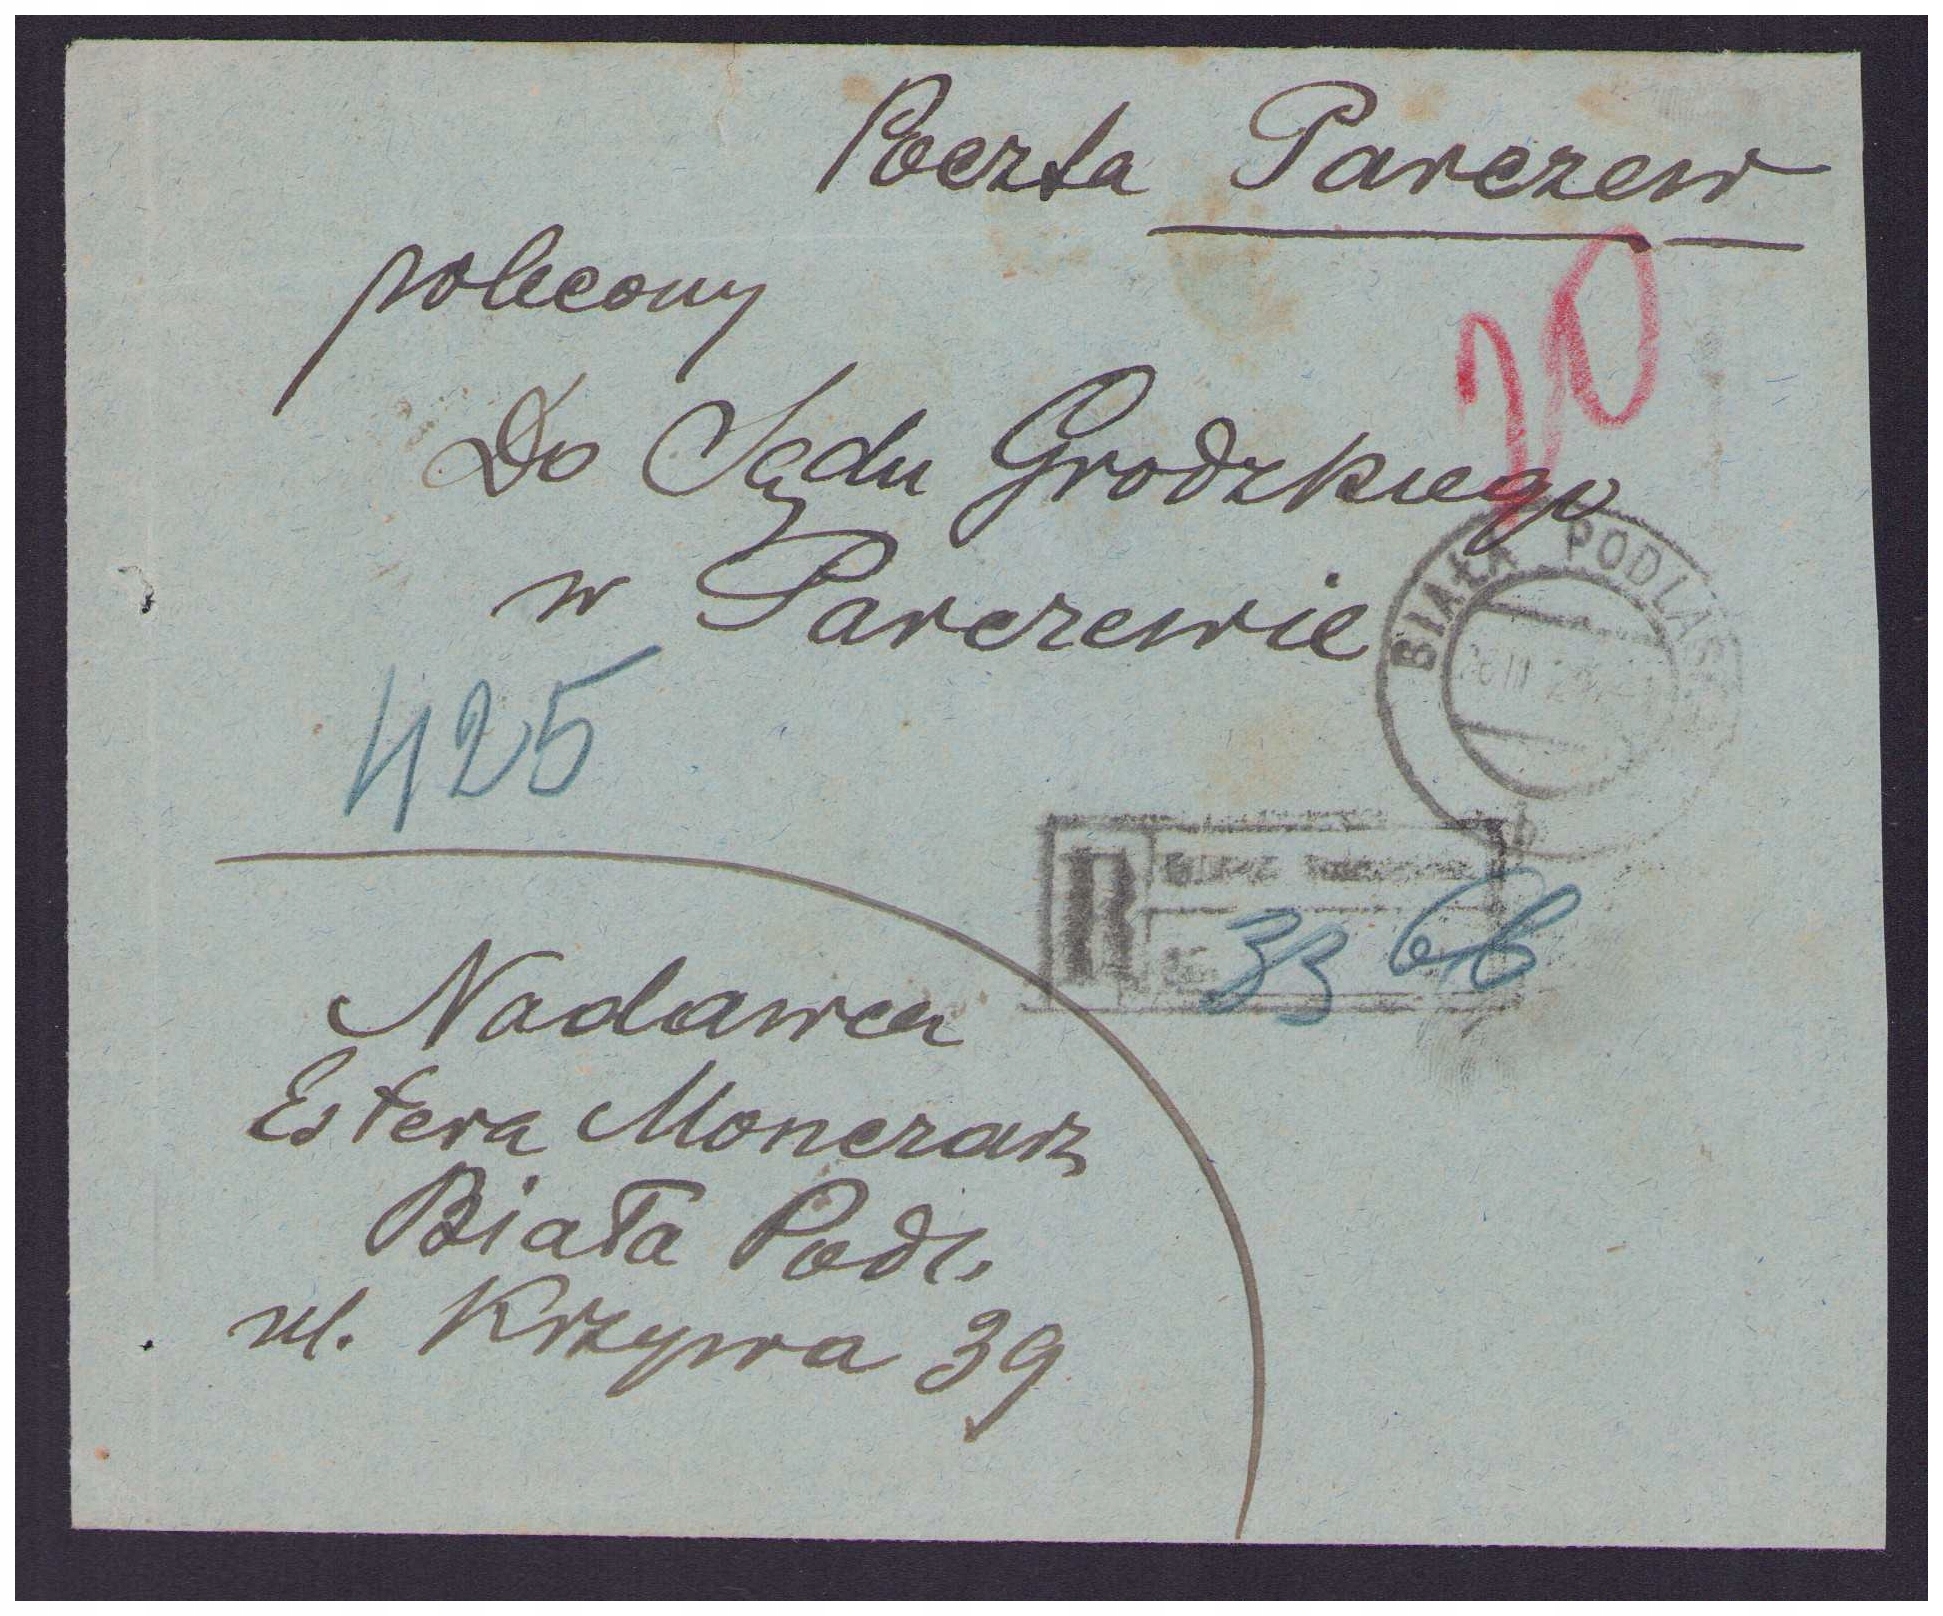 Poczta Parczew
polecony
20
Do Sądu Grodzkiego
w Parczewie
BIAŁA PODLAS
III
425
R
33 6b
Nadawca
Estera Monczarz
Biała Podl.
ul. Krzywa 39